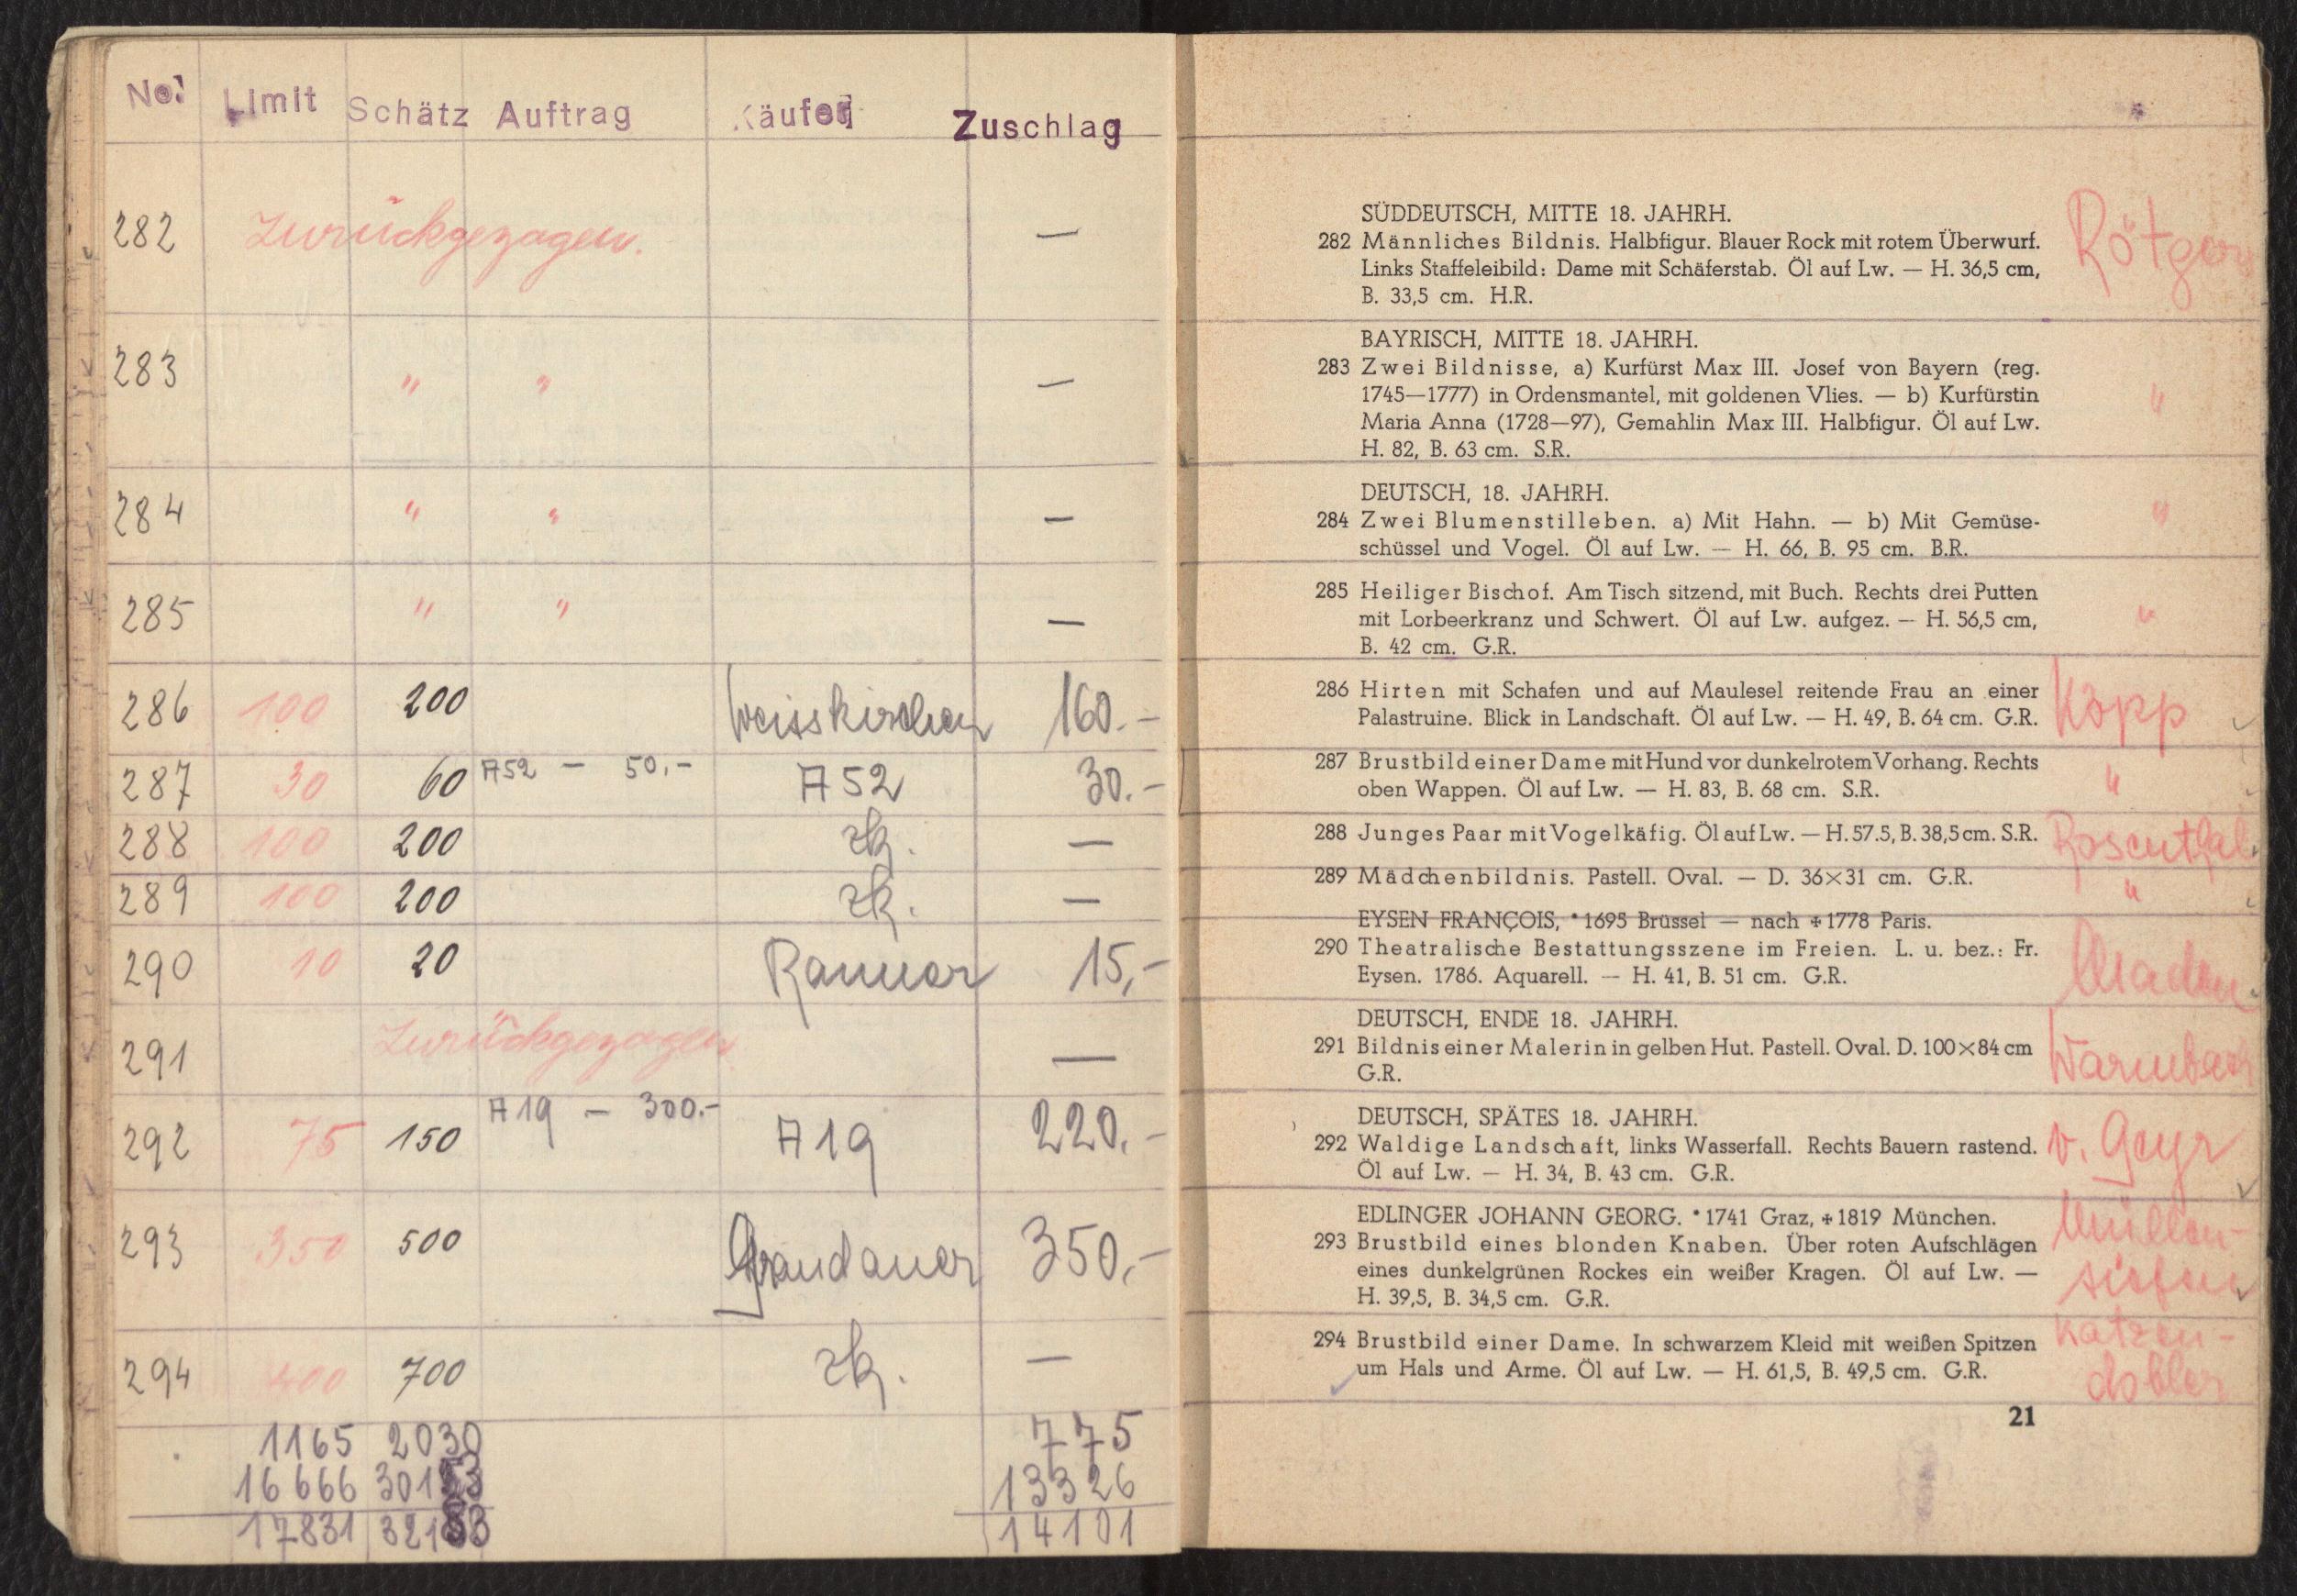 No. Limit Schätz Auftrag Käufer Zuschlag
282 zurückgezogen. —
283 " " —
284 " " —
285 " " —
286 100 200 Weisskirchen 160.-
287 30 60 A52 — 50,- A52 30.-
288 100 200 zk. —
289 100 200 zk. —
290 10 20 15,-
291 zurückgezogen —
292 75 150 A19 — 300.- A19 220.-
293 350 500 Grandauer 350,-
294 400 700 zk. —
1165 2030 775
16666 13326
17831 14101
SÜDDEUTSCH, MITTE 18. JAHRH.
282 Männliches Bildnis. Halbfigur. Blauer Rock mit rotem Überwurf.
Links Staffeleibild: Dame mit Schäferstab. Öl auf Lw. — H. 36,5 cm,
B. 33,5 cm. H.R.
Rötger
BAYRISCH, MITTE 18. JAHRH.
283 Zwei Bildnisse, a) Kurfürst Max III. Josef von Bayern (reg.
1745—1777) in Ordensmantel, mit goldenen Vlies. — b) Kurfürstin "
Maria Anna (1728—97), Gemahlin Max III. Halbfigur. Öl auf Lw.
H. 82, B. 63 cm. S.R.
DEUTSCH, 18. JAHRH.
284 Zwei Blumenstilleben. a) Mit Hahn. — b) Mit Gemüse- "
schüssel und Vogel. Öl auf Lw. — H. 66, B. 95 cm. B.R.
285 Heiliger Bischof. Am Tisch sitzend, mit Buch. Rechts drei Putten
mit Lorbeerkranz und Schwert. Öl auf Lw. aufgez. — H. 56,5 cm, "
B. 42 cm. G.R.
286 Hirten mit Schafen und auf Maulesel reitende Frau an einer
Palastruine. Blick in Landschaft. Öl auf Lw. — H. 49, B. 64 cm. G.R. Kopp
287 Brustbild einer Dame mit Hund vor dunkelrotem Vorhang. Rechts
oben Wappen. Öl auf Lw. — H. 83, B. 68 cm. S.R. "
288 Junges Paar mit Vogelkäfig. Öl auf Lw. — H. 57.5, B. 38,5 cm. S.R. Rosenthal
289 Mädchenbildnis. Pastell. Oval. — D. 36×31 cm. G.R. "
EYSEN FRANÇOIS, * 1695 Brüssel — nach ✝ 1778 Paris.
290 Theatralische Bestattungsszene im Freien. L. u. bez.: Fr.
Eysen. 1786. Aquarell. — H. 41, B. 51 cm. G.R.
DEUTSCH, ENDE 18. JAHRH.
291 Bildnis einer Malerin in gelben Hut. Pastell. Oval. D. 100×84 cm
G.R. Warmbach
DEUTSCH, SPÄTES 18. JAHRH.
292 Waldige Landschaft, links Wasserfall. Rechts Bauern rastend. v. Geyr
Öl auf Lw. — H. 34, B. 43 cm. G.R.
EDLINGER JOHANN GEORG. * 1741 Graz, ✝ 1819 München.
293 Brustbild eines blonden Knaben. Über roten Aufschlägen Müllen-
eines dunkelgrünen Rockes ein weißer Kragen. Öl auf Lw. — siefen
H. 39,5, B. 34,5 cm. G.R.
294 Brustbild einer Dame. In schwarzem Kleid mit weißen Spitzen Katzen-
um Hals und Arme. Öl auf Lw. — H. 61,5, B. 49,5 cm. G.R. dobler
21